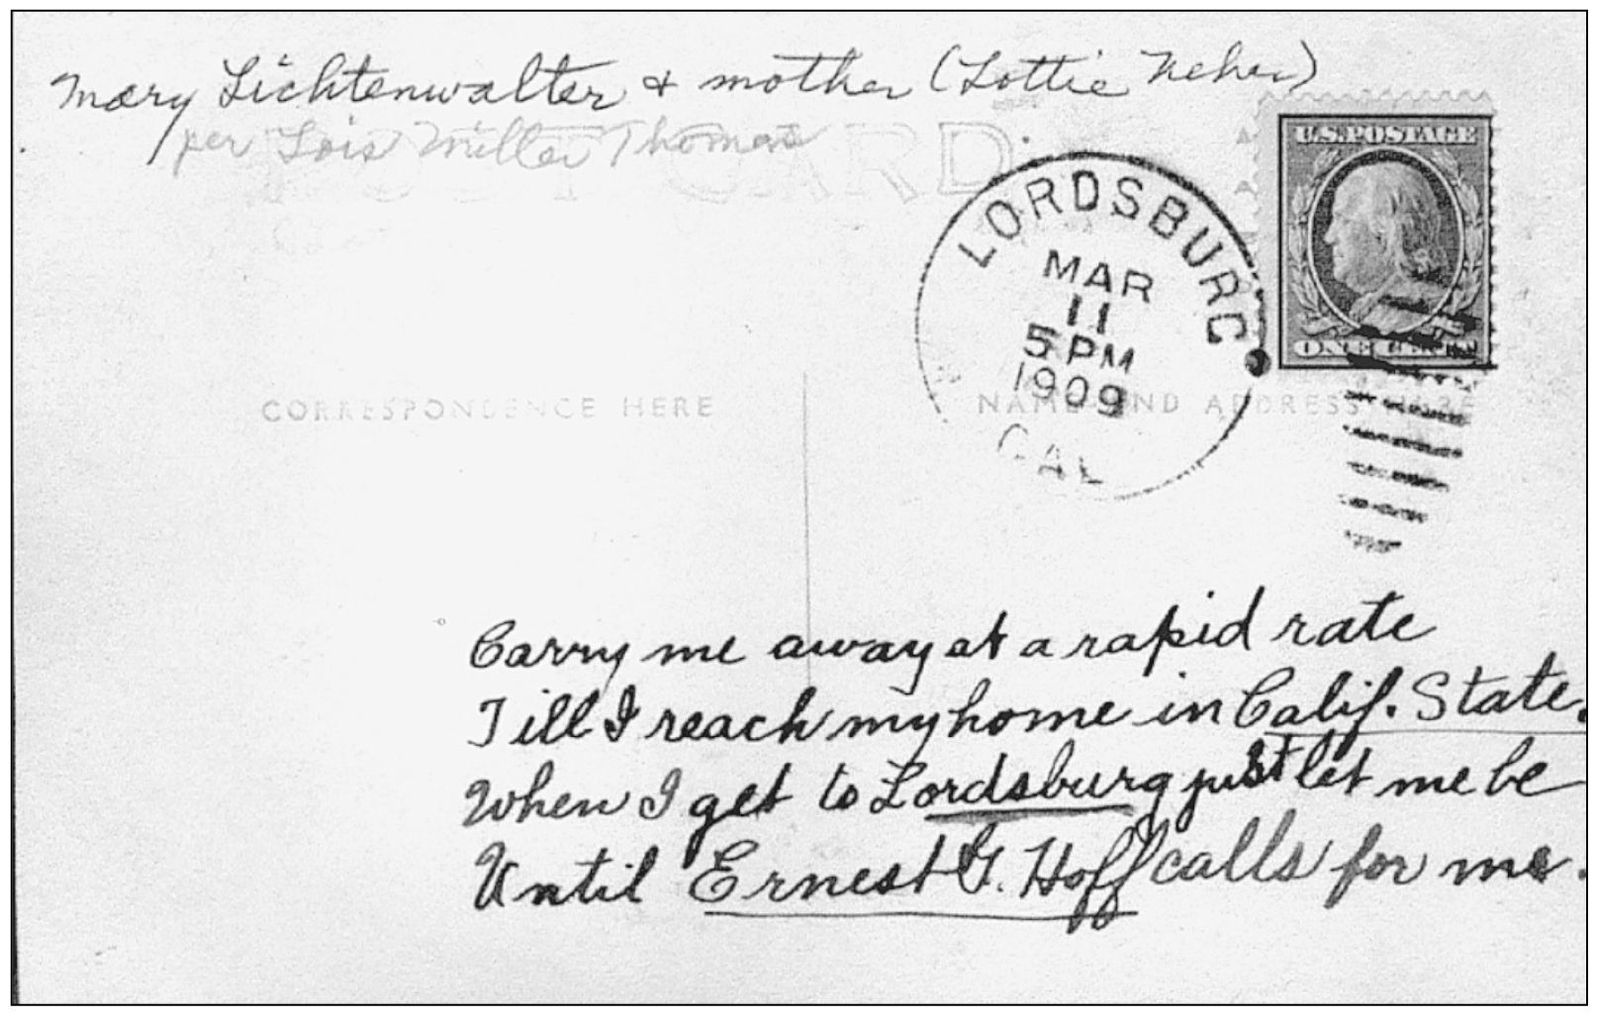 Mary Lichtenwalter & mother (Lottie Neher)
per Lois Miller Thomas
POST CARD
U.S. POSTAGE
LORDSBURG
MAR
11
5 PM
1909
CAL
ONE CENT
CORRESPONDENCE HERE
NAME AND ADDRESS HERE
Carry me away at a rapid rate
Till I reach my home in Calif. State.
When I get to Lordsburg just let me be
Until Ernest G. Hoff calls for me.